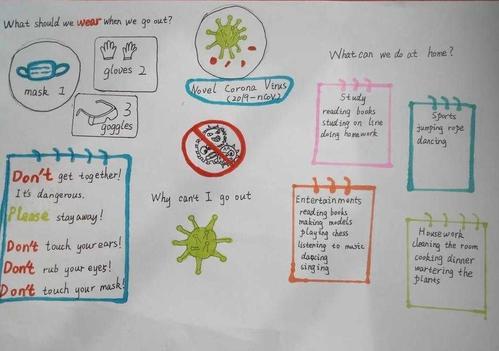 What should we wear when we go out?
mask 1
gloves 2
3
goggles
Novel Corona Virus
(2019-nCoV)
Don't get together!
It's dangerous.
Please stay away!
Don't touch your ears!
Don't rub your eyes!
Don't touch your mask!
Why can't I go out
What can we do at home?
Study
reading books
studing on line
doing homework
Sports
jumping rope
dancing
Entertainments
reading books
making models
playing chess
listening to music
dancing
singing
Housework
cleaning the room
cooking dinner
wartering the
plants